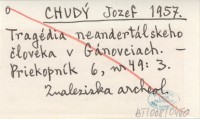 CHUDÝ Jozef 1957.
Tragédia neandertálskeho
človeka v Gánovciach. —
Priekopník 6, nr 49: 3.
Znaleziska archeol.